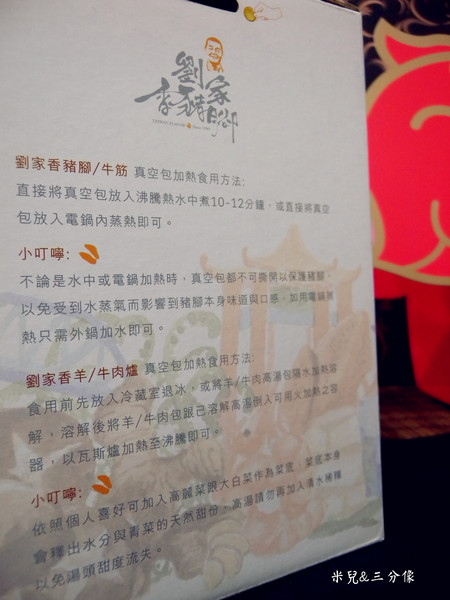 劉家
香豬腳
劉家香豬腳/牛筋 真空包加熱食用方法:
直接將真空包放入沸騰熱水中煮10-12分鐘，或直接將真空
包放入電鍋內蒸熱即可。
小叮嚀:
不論是水中或電鍋加熱時，真空包都不可撕開以保護豬腳，
以免受到水蒸氣而影響到豬腳本身味道與口感，如用電鍋蒸
熱只需外鍋加水即可。
劉家香羊/牛肉爐 真空包加熱食用方法:
食用前先放入冷藏室退冰，或將羊/牛肉高湯包隔水加熱溶
解，溶解後將羊/牛肉包跟已溶解高湯倒入可用火加熱之容
器，以瓦斯爐加熱至沸騰即可。
小叮嚀:
依照個人喜好可加入高麗菜跟大白菜作為菜底，菜底本身
會釋出水分與青菜的天然甜份，高湯請勿再加入清水稀釋
以免湯頭甜度流失。
米兒&三分像